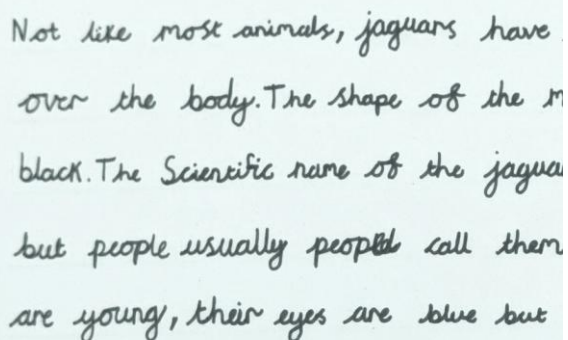 Not like most animals, jaguars have
over the body. The shape of the
black. The Scientific name of the
but people usually call them
are young, their eyes are blue but